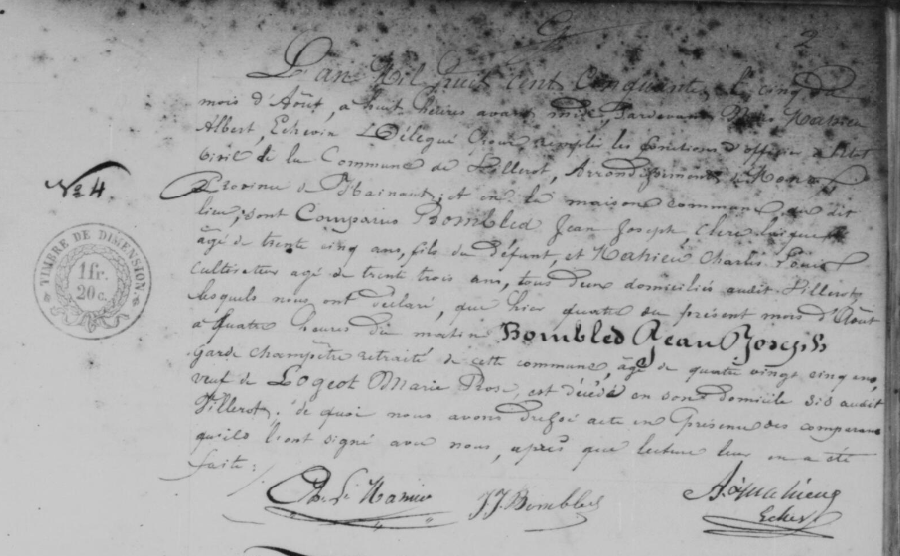 2
L'an Mil huit cent Cinquante, le cinq du
mois d'Août, à huit heures avant midi, Pardevant Nous Mahieu
Albert, Echevin Délégué pour remplir les fonctions d'officier de l'état
Civil de la Commune de Villerot, Arrondissement de Mons,
Province de Hainaut, et en la maison commune, du dit
lieu, sont Comparus Bombled Jean Joseph Clerc laïque
âgé de trente cinq ans, fils du défunt, et Mahieu Charles Louis
Cultivateur agé de trente trois ans, tous deux domiciliés audit Villerot
lesquels nous ont déclaré, que hier quatre du présent mois d'Août
à quatre heures du matin Bombled Jean Joseph
garde champêtre retraité de cette commune, âgé de quatre vingt cinq ans,
veuf de Logeot Marie Rose, est décédé en son domicile sis audit
Villerot; de quoi nous avons dressé acte en présence des comparans
qu'ils l'ont signé avec nous, après que lecture leur en a été
faite;
Ch. Ls Mahieu J.J. Bombled
Echev
No 4.
TIMBRE DE DIMENSION
1 fr.
20 c.